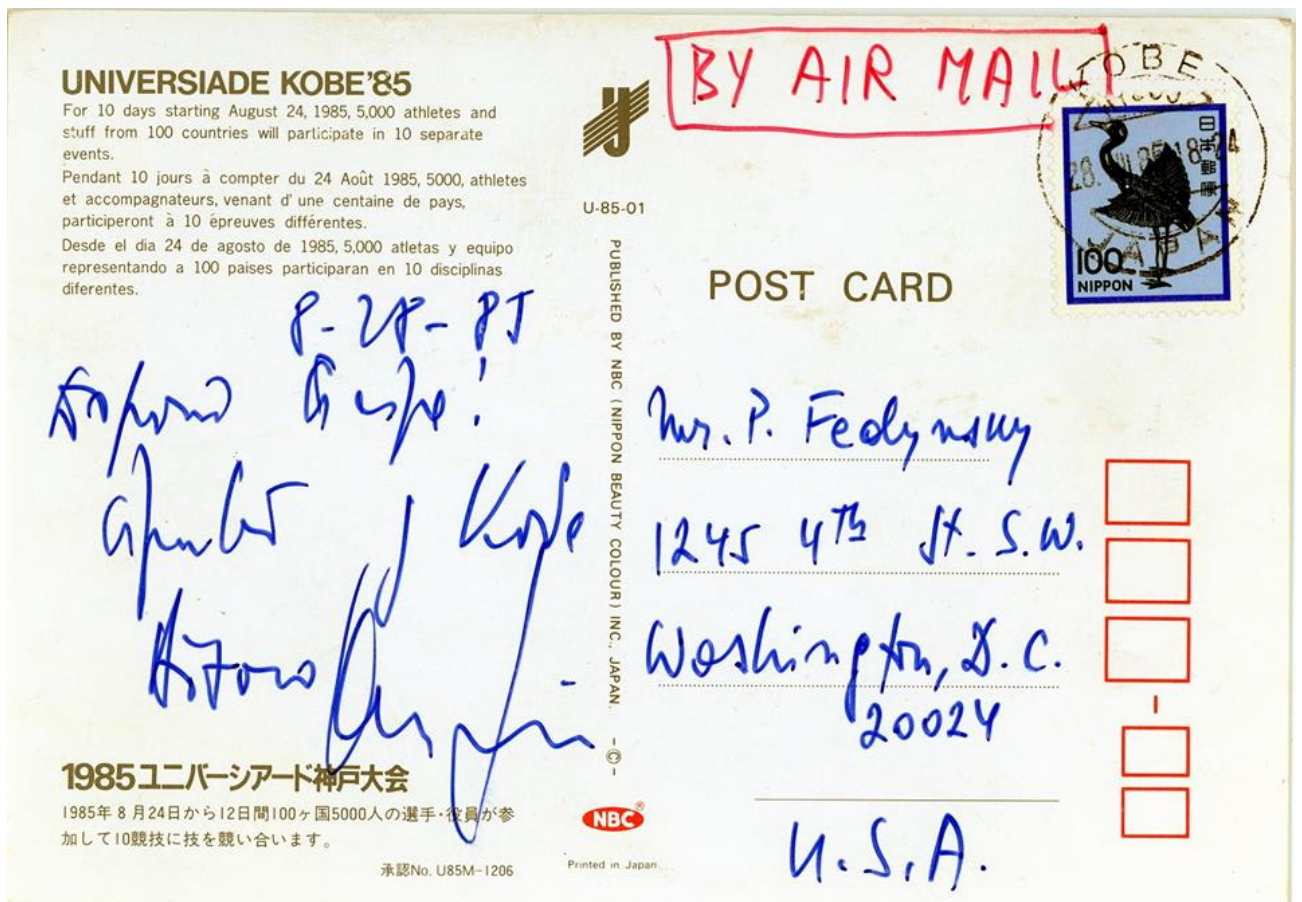 UNIVERSIADE KOBE'85
For 10 days starting August 24, 1985, 5,000 athletes and
stuff from 100 countries will participate in 10 separate
events.
Pendant 10 jours à compter du 24 Août 1985, 5000, athletes
et accompagnateurs, venant d' une centaine de pays,
participeront à 10 épreuves différentes.
Desde el dia 24 de agosto de 1985, 5,000 atletas y equipo
representando a 100 paises participaran en 10 disciplinas
diferentes.
8-28-85
Kobe
1985ユニバーシアード神戸大会
1985年8月24日から12日間100ヶ国5000人の選手・役員が参
加して10競技に技を競い合います。
承認No. U85M-1206
U-85-01
PUBLISHED BY NBC (NIPPON BEAUTY COLOUR) INC., JAPAN. -©-
NBC®
Printed in Japan.
BY AIR MAIL
KOBE
18-24
JAPAN
日本郵便
100
NIPPON
POST CARD
Mr. P. Fedynsky
1245 4th St. S.W.
Washington, D.C.
20024
U.S.A.